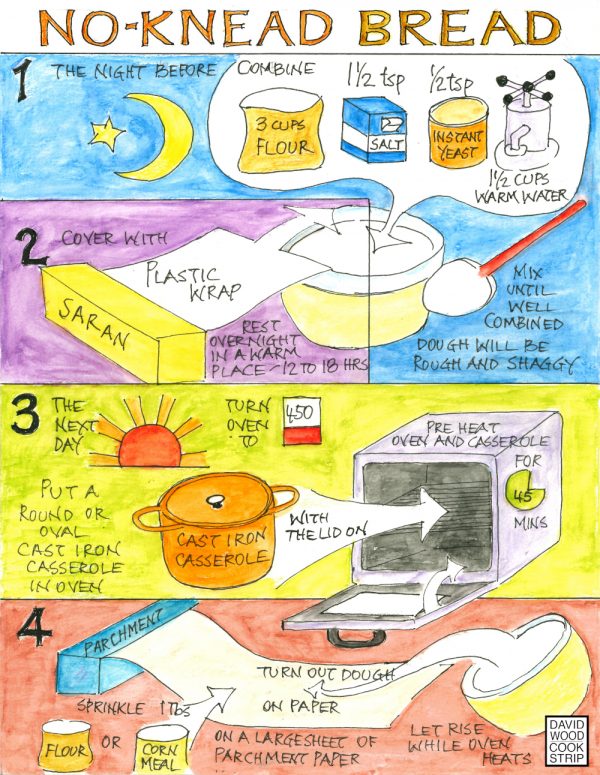 NO-KNEAD BREAD
1
THE NIGHT BEFORE
COMBINE
3 CUPS
FLOUR
1 1/2 tsp
SALT
1/2 tsp
INSTANT
YEAST
1 1/2 CUPS
WARM WATER
MIX
UNTIL
WELL
COMBINED
DOUGH WILL BE
ROUGH AND SHAGGY
2
COVER WITH
PLASTIC
WRAP
SARAN
REST
OVERNIGHT
IN A WARM
PLACE - 12 TO 18 HRS
3
THE
NEXT
DAY
TURN
OVEN
TO
450
PUT A
ROUND OR
OVAL
CAST IRON
CASSEROLE
IN OVEN
CAST IRON
CASSEROLE
WITH
THE LID ON
PRE HEAT
OVEN AND CASSEROLE
FOR
45
MINS
4
PARCHMENT
SPRINKLE 1 Tbs
FLOUR
OR
CORN
MEAL
TURN OUT DOUGH
ON PAPER
ON A LARGE SHEET OF
PARCHMENT PAPER
LET RISE
WHILE OVEN
HEATS
DAVID
WOOD
COOK
STRIP